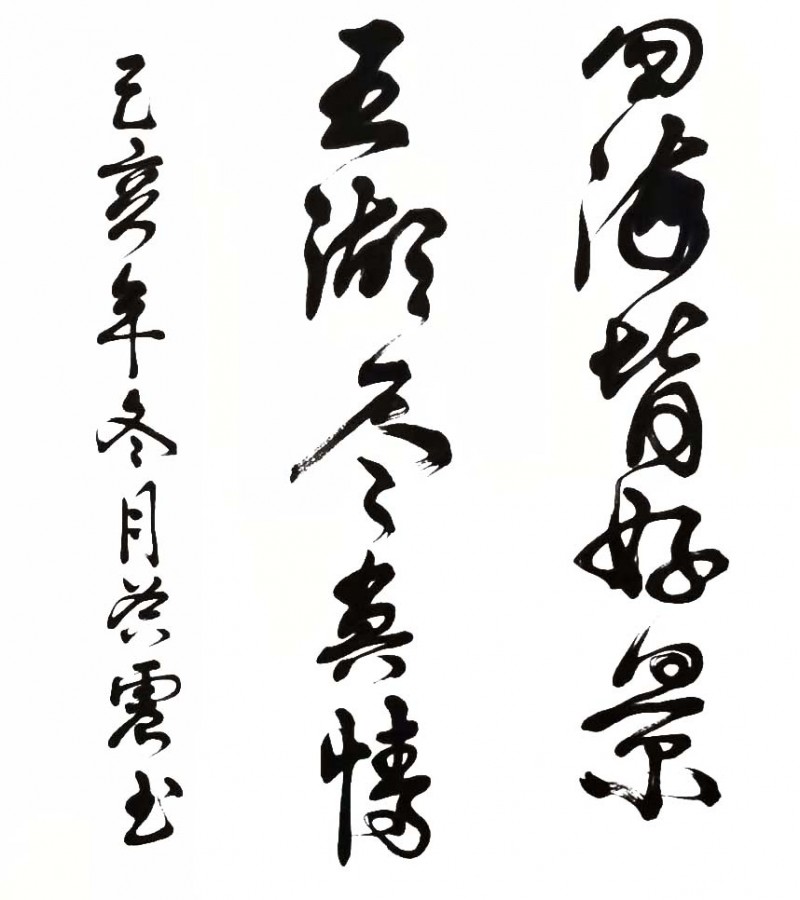 四海皆好景
五湖尽真情
己亥年冬月苍震书